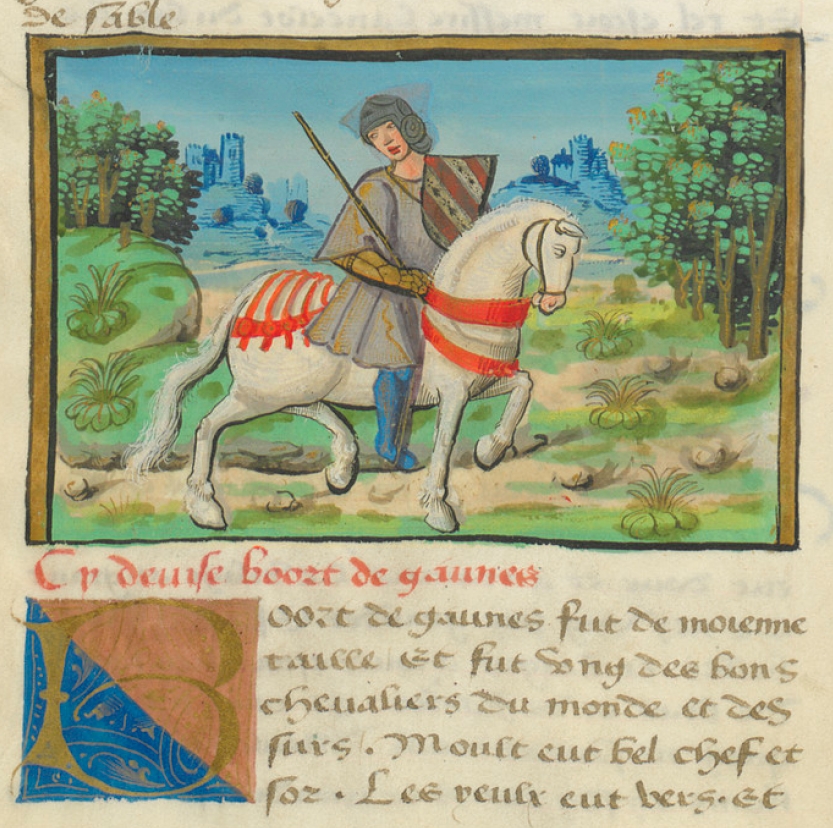 de sable
Cy deuise boort de gaunes
Boort de gaunes fut de moienne
taille Et fut vng des bons
cheualiers du monde et des
surs. Moult eut bel chef et
sor. Les yeulx eut vers. Et